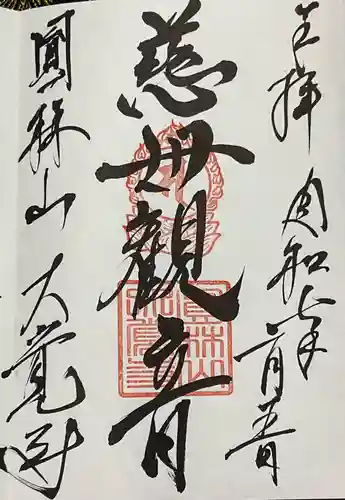 奉拝 令和七年二月五日
慈母観音
圓林山 大覚寺